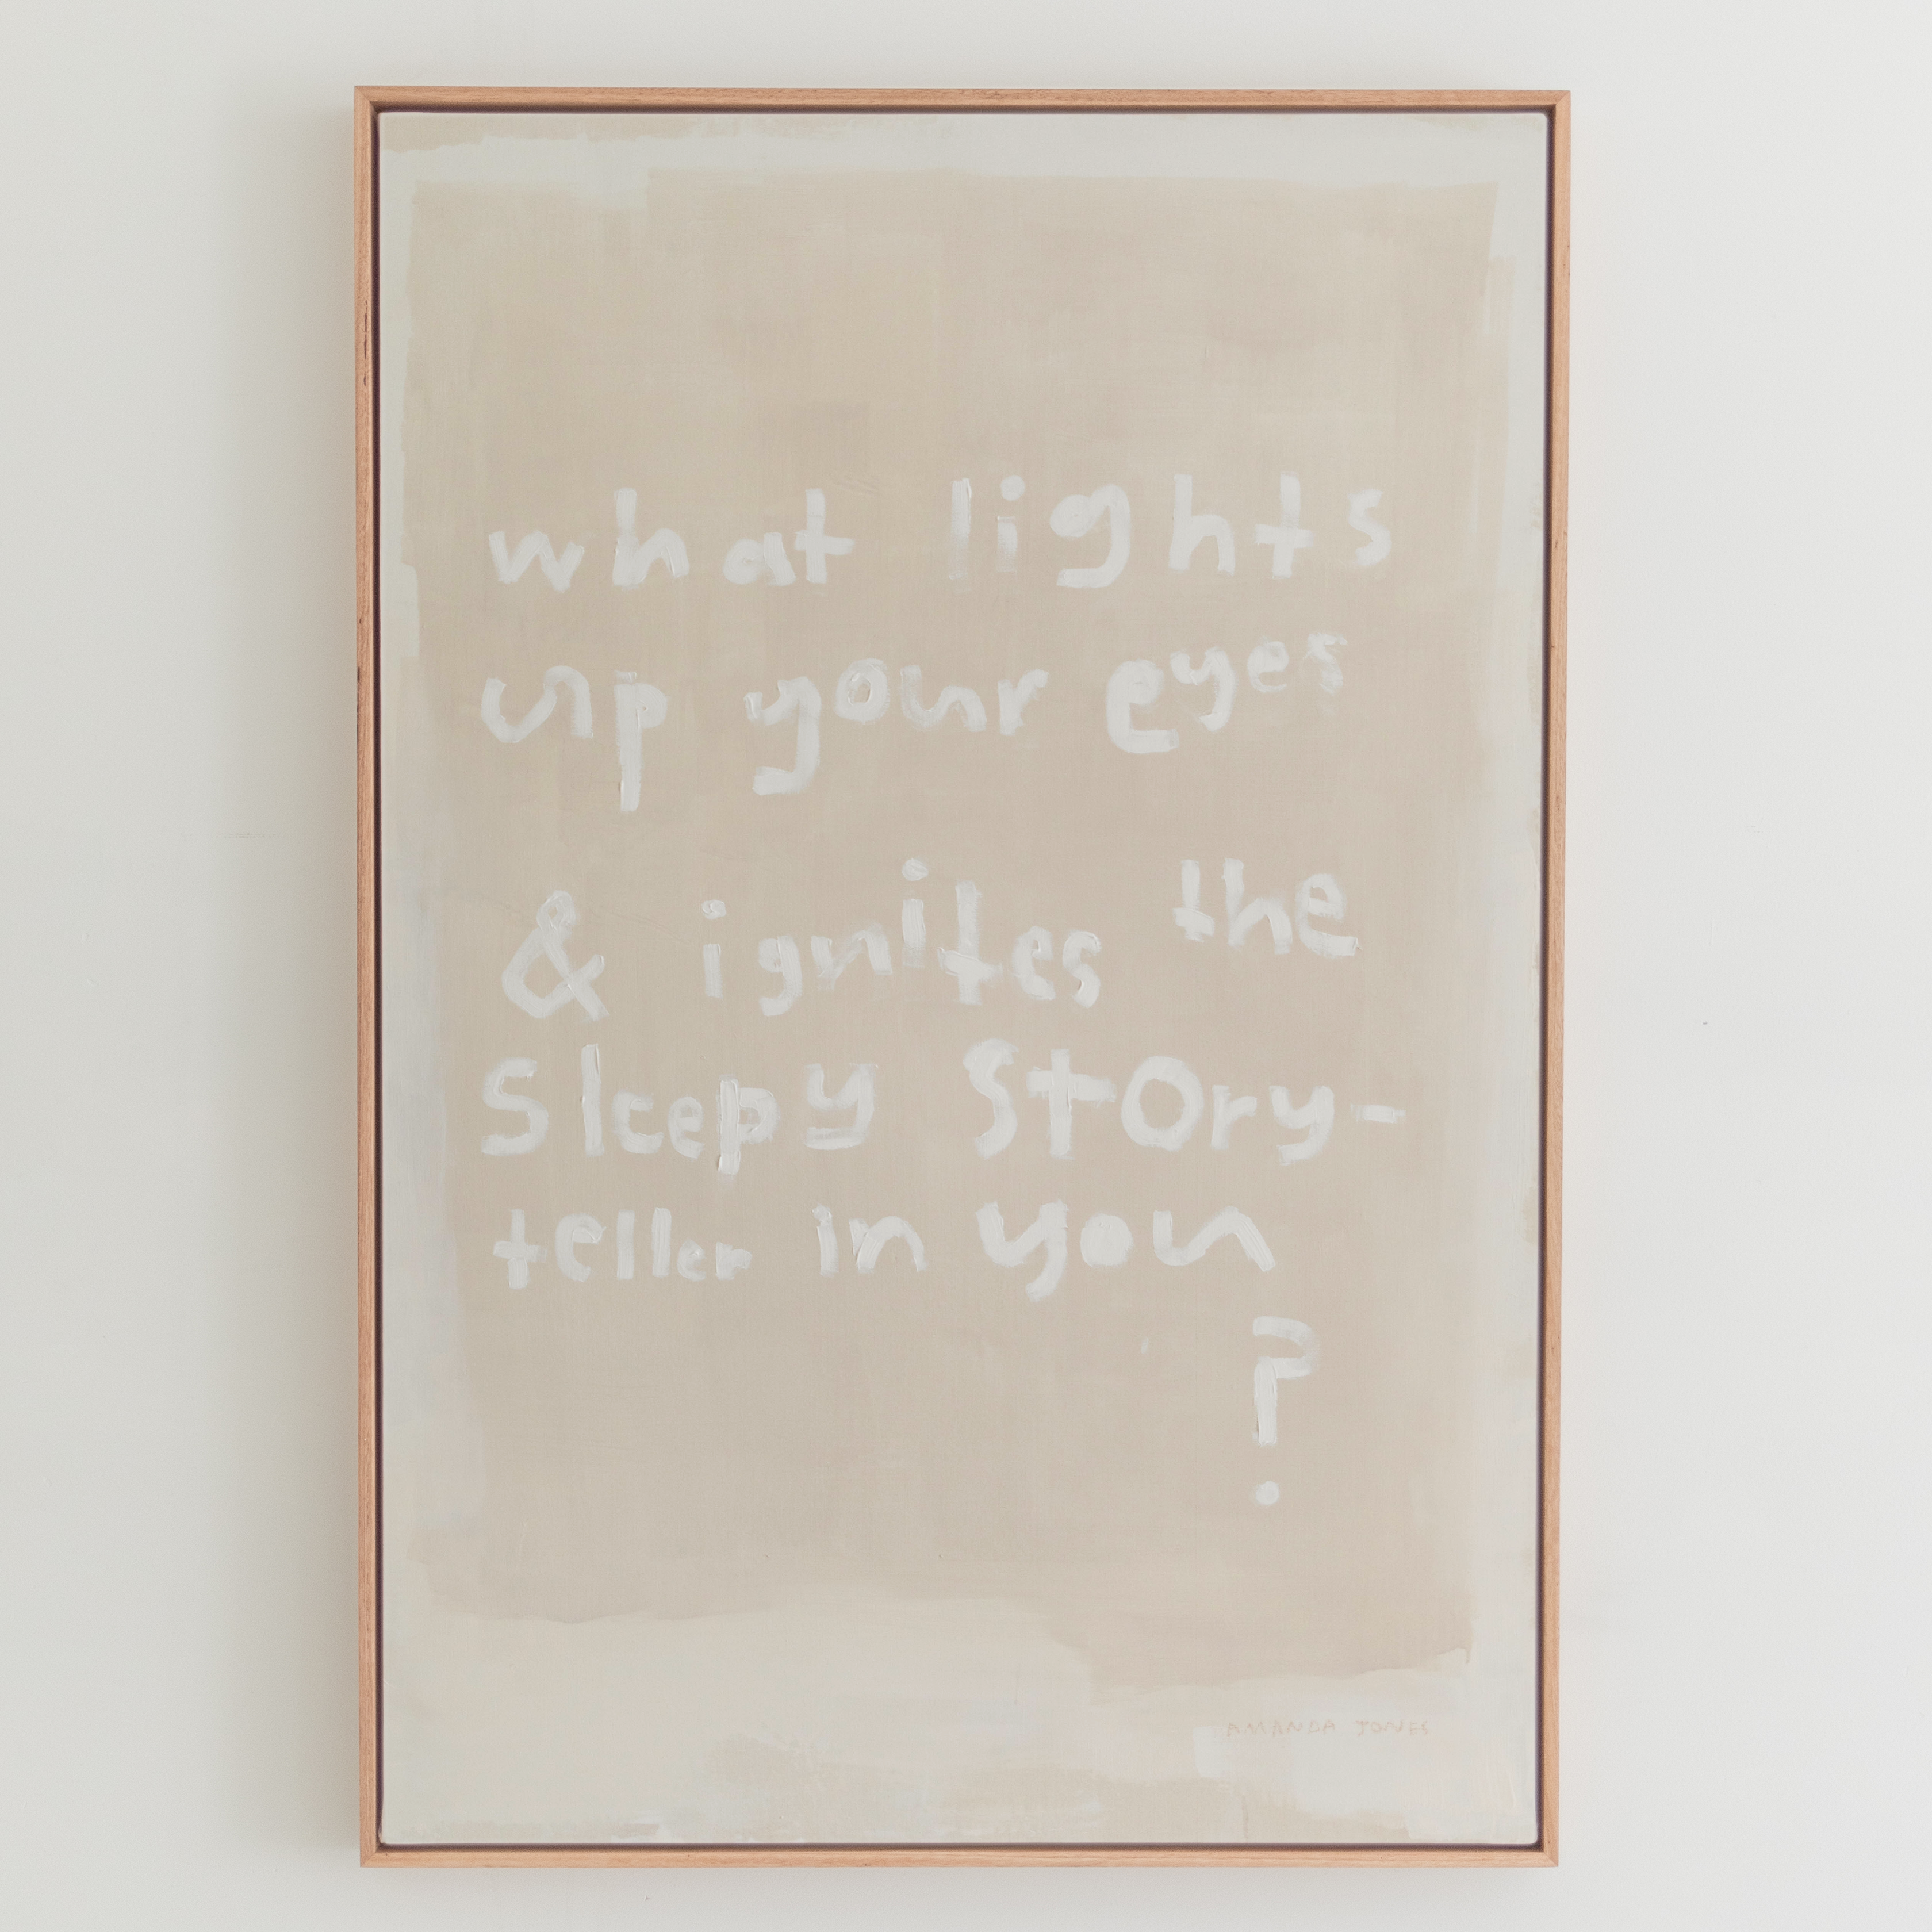 what lights
up your eyes
& ignites the
Sleepy Story-
teller in you
?
AMANDA JONES